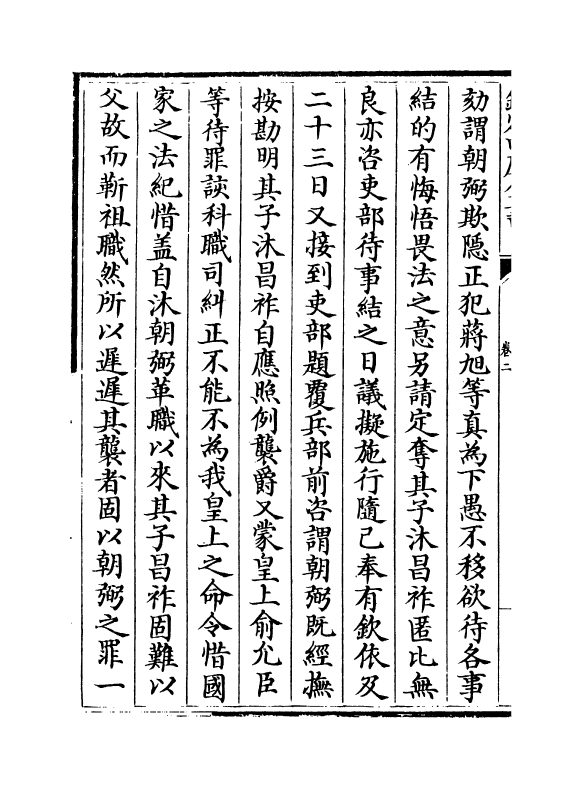 劾謂朝弼欺隱正犯蔣旭等真為下愚不移欲待各事
結的有悔悟畏法之意另請定奪其子沐昌祚匿比無
良亦咨吏部待事結之日議擬施行隨已奉有欽依及
二十三日又接到吏部題覆兵部前咨謂朝弼既經撫
按勘明其子沐昌祚自應照例襲爵又蒙皇上俞允臣
等待罪諫科職司糾正不能不為我皇上之命令惜國
家之法紀惜盖自沐朝弼革職以來其子昌祚固難以
父故而靳祖職然所以遲遲其襲者固以朝弼之罪一
卷二